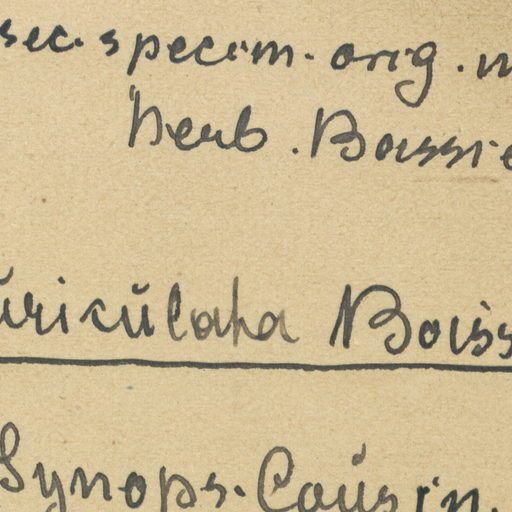 sec. specim. orig. in
herb. Boissie
uriculata Boiss
Synops. Cousin.